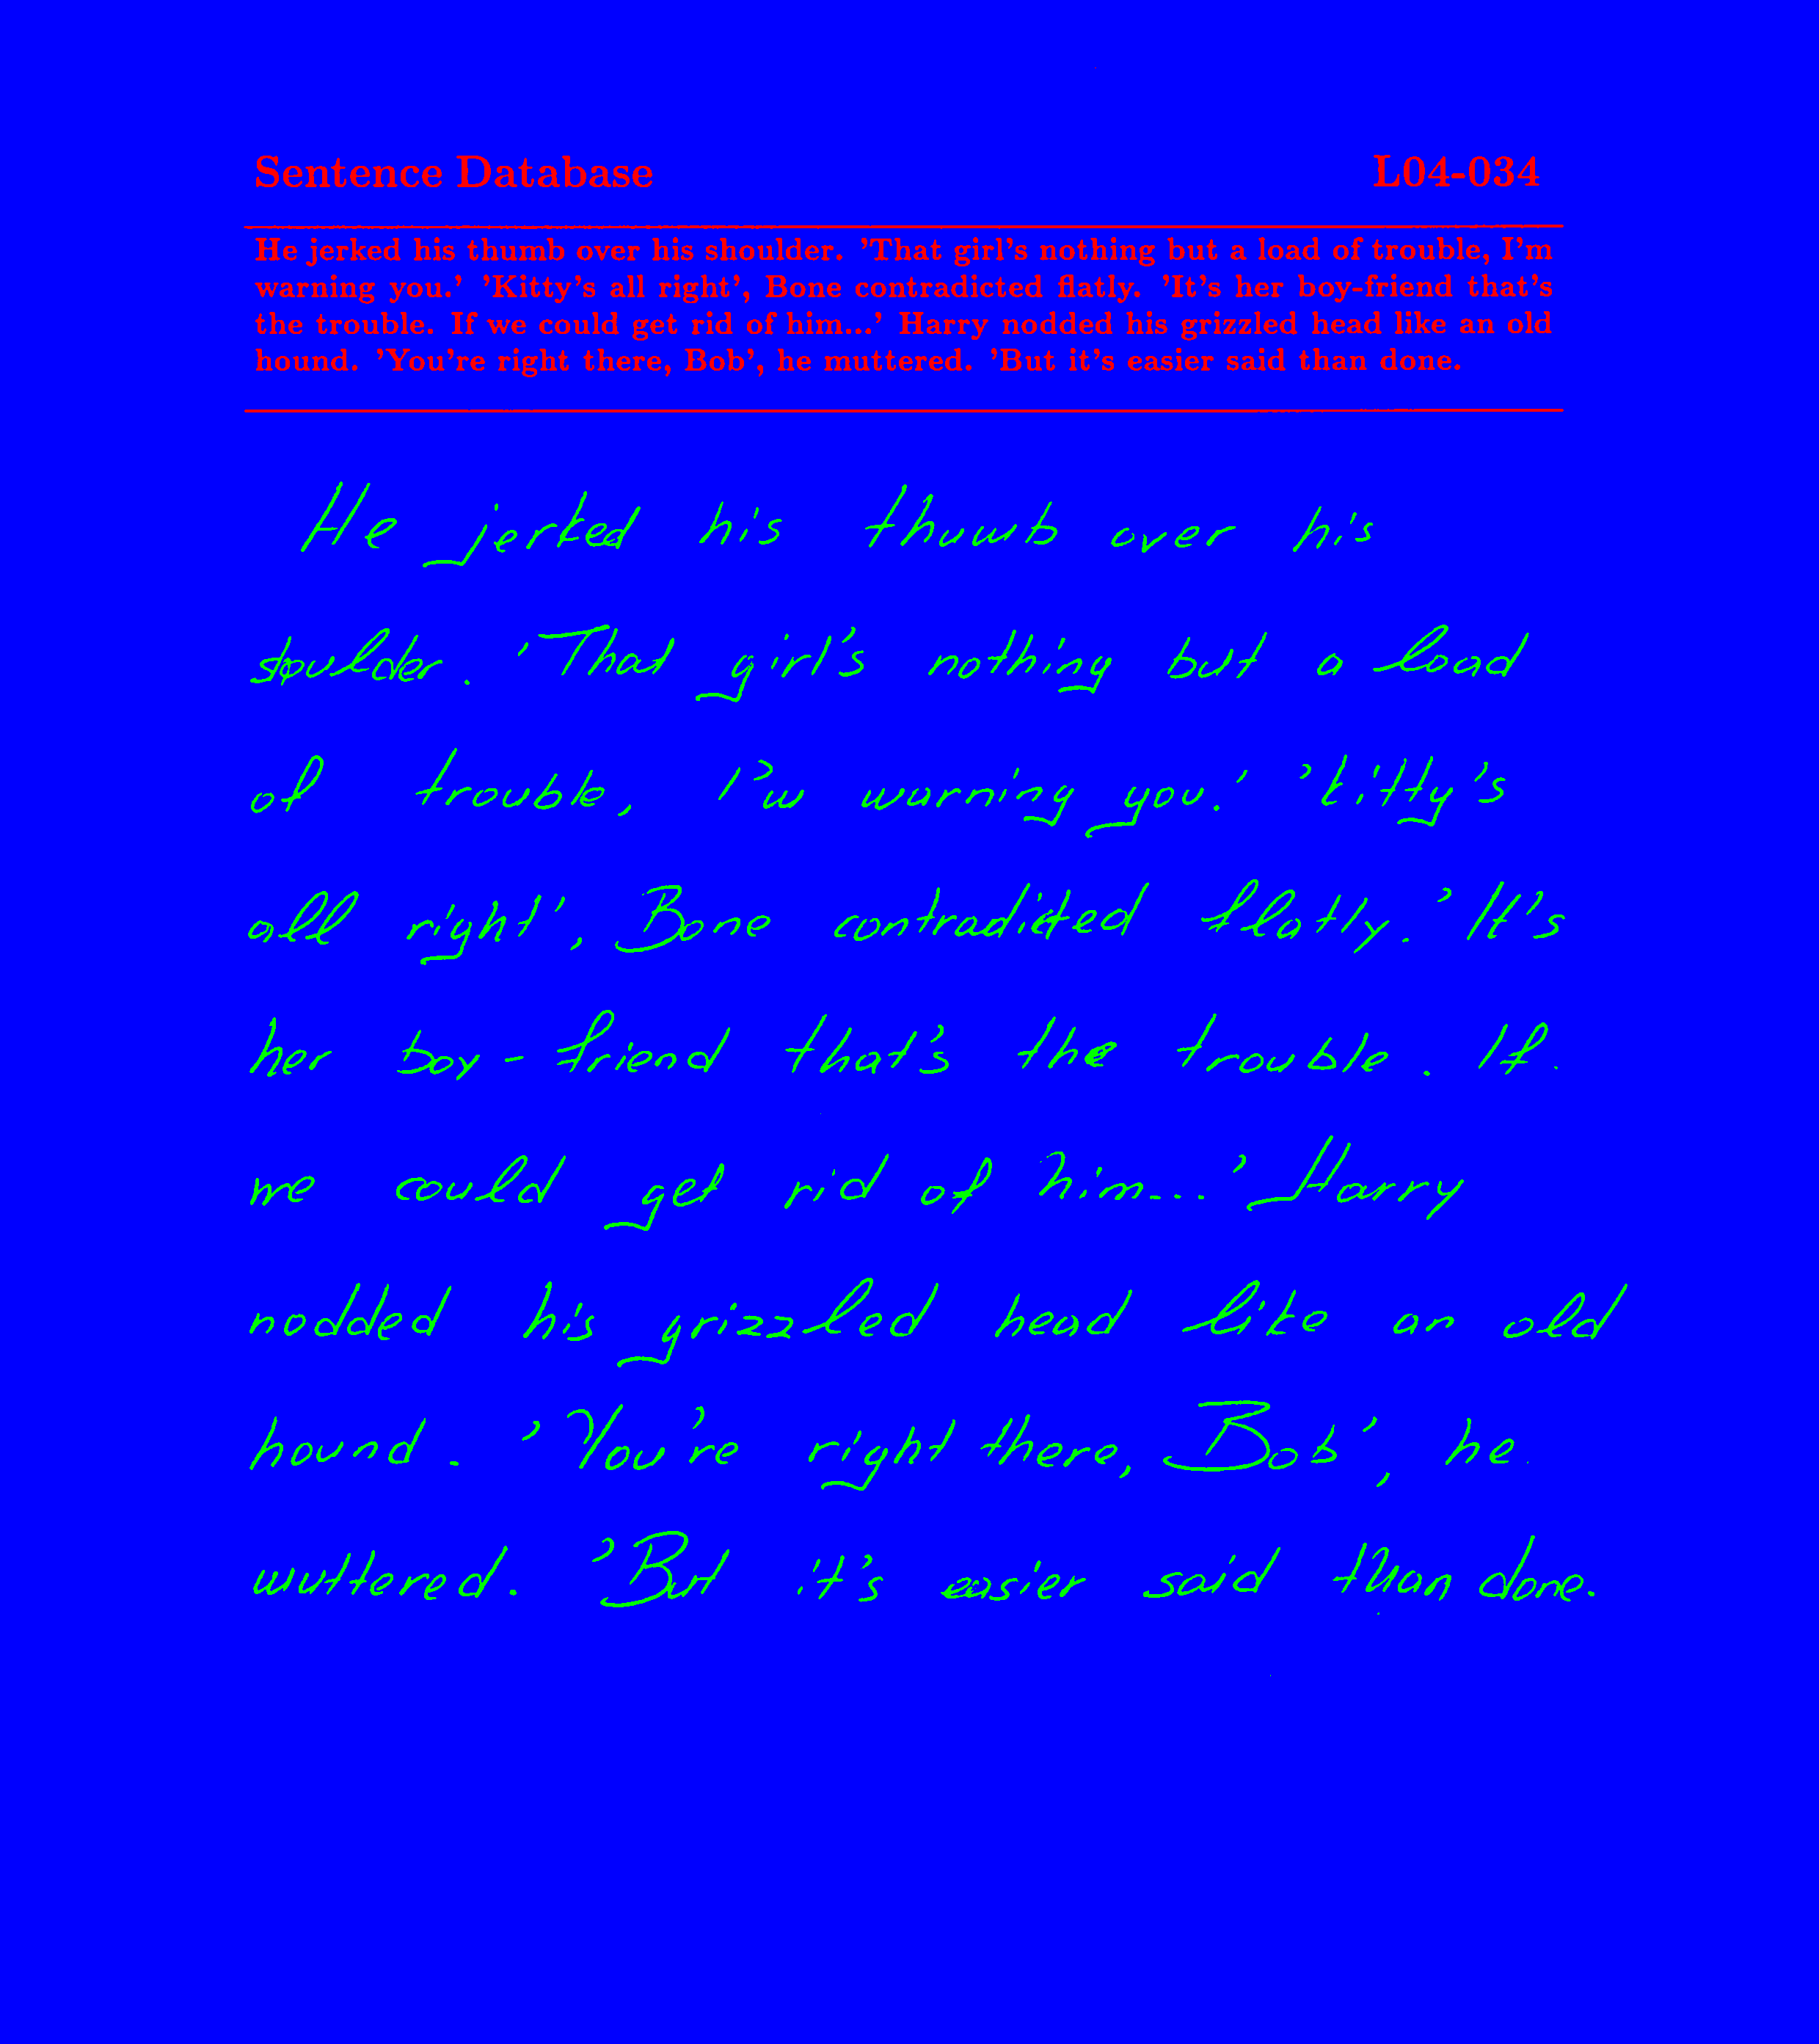 Sentence Database L04-034
He jerked his thumb over his shoulder. 'That girl's nothing but a load of trouble, I'm
warning you.' 'Kitty's all right', Bone contradicted flatly. 'It's her boy-friend that's
the trouble. If we could get rid of him...' Harry nodded his grizzled head like an old
hound. 'You're right there, Bob', he muttered. 'But it's easier said than done.
He jerked his thumb over his
shoulder. 'That girl's nothing but a load
of trouble, I'm warning you.' 'Kitty's
all right', Bone contradicted flatly. 'It's
her boy-friend that's the trouble. If
we could get rid of him...' Harry
nodded his grizzled head like an old
hound. 'You're right there, Bob', he
muttered. 'But it's easier said than done.